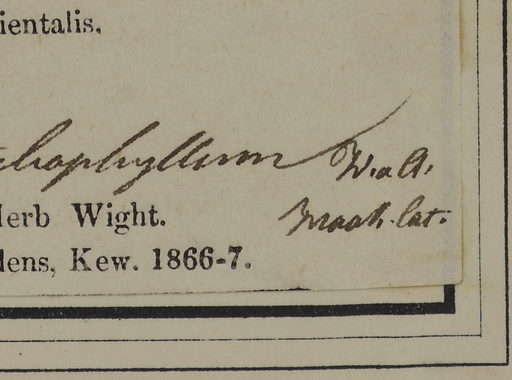 ientalis.
chophyllum Wall.
Herb Wight.
cat.
dens, Kew. 1866-7.